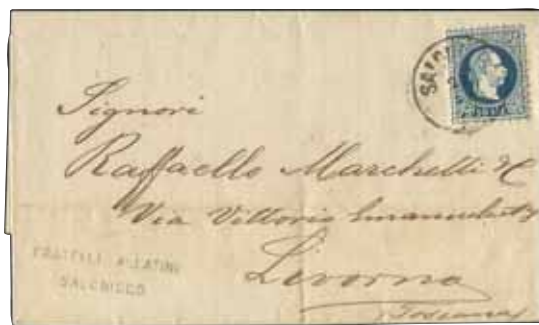 Signori
Raffaello Marchelli &C
Via Vittorio Emanuele
Livorno
(Toscana)
FRATELLI ALLATINI
SALONICCO
SALO